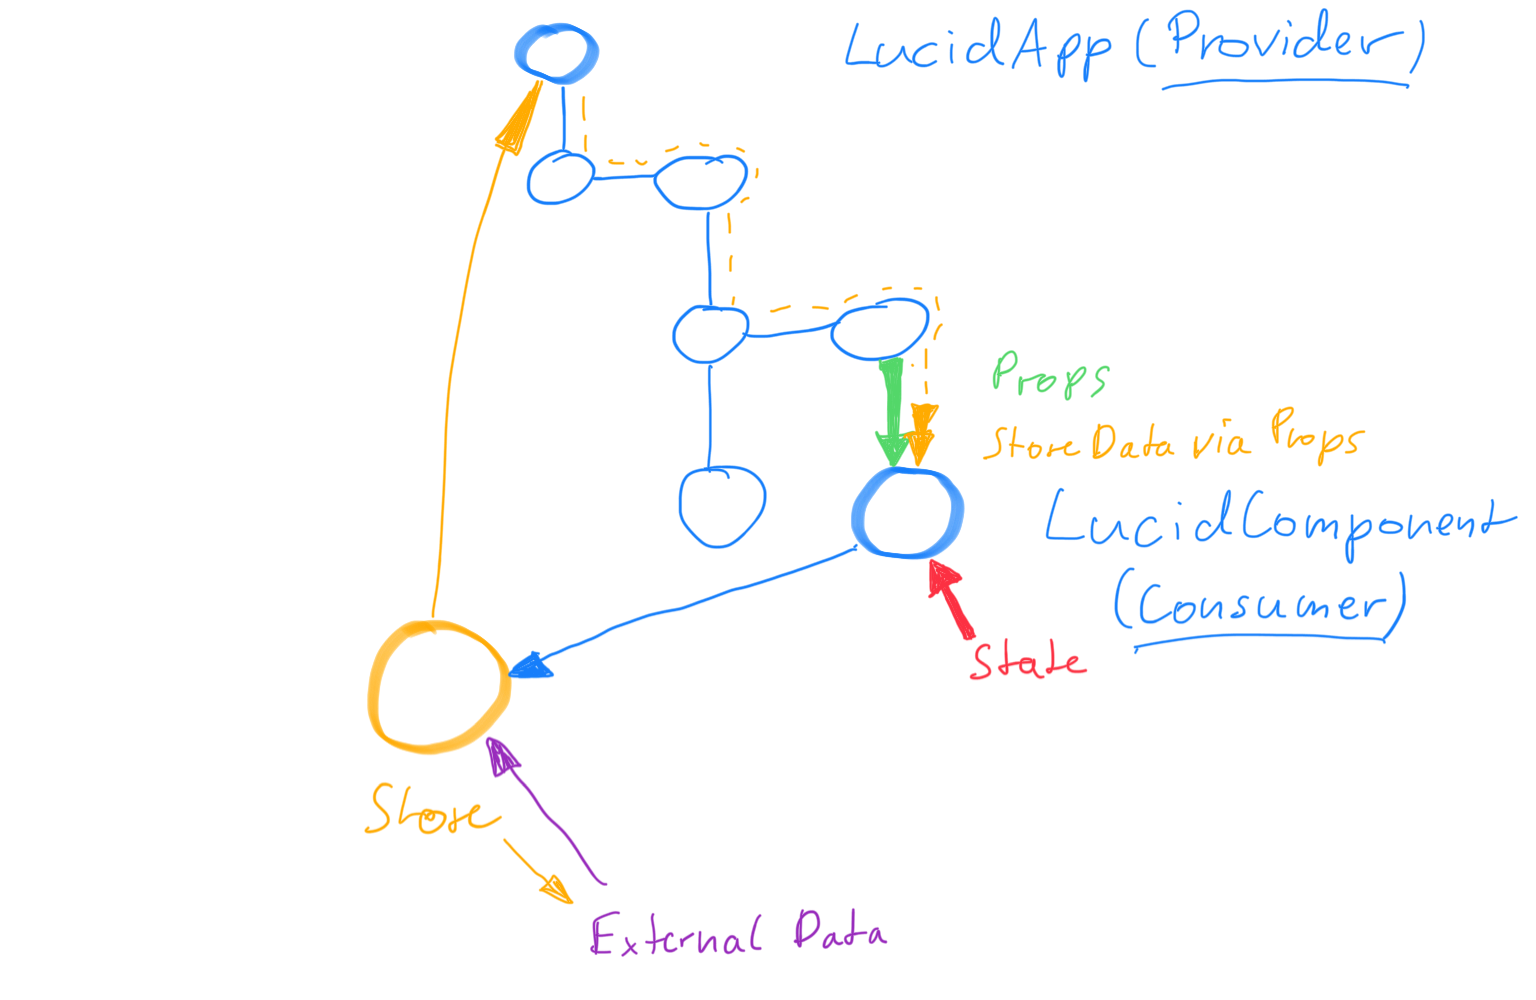 LucidApp (Provider)
Props
StoreData via Props
LucidComponent
(Consumer)
State
Store
External Data